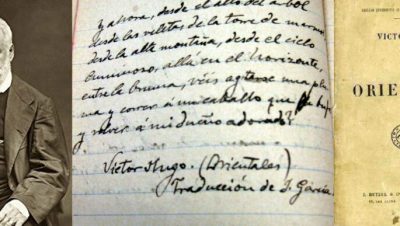 y ahora, desde el alto del arbol
desde las veletas de la torre de marmol
desde la alta montaña, desde el cielo
luminoso, allá en el horizonte,
entre la bruma, veis agitarse una plu
ma y correr á un caballo que
y volver á mi dueño adorado?
Victor Hugo. (Orientales)
Traducción de J. García
VICTO
ORIE